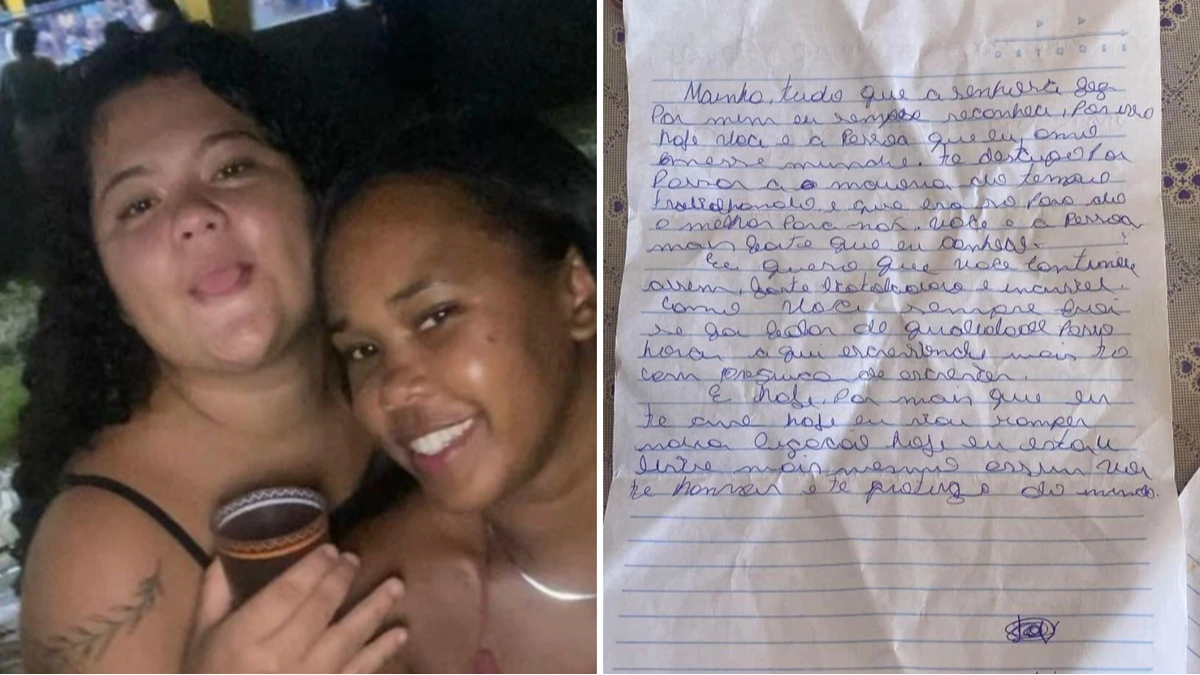 D S T Q Q S S
Mainha, tudo que a senhora fez
Por mim eu sempre reconheci, Por isso
hoje voce e a Pessoa que eu amo
nesse mundo. te desculpe Por
Passar a maioria do tempo
trabalhando, e que era so Para do
o melhor Para nos. Voce e a Pessoa
mais forte que eu conheço.
Eu quero que voce continue
assim, forte batalhadora e incrivel.
como voce sempre foi
de qualidade
horas aqui escrevendo mais to
com preguiça de escrever.
E hoje, Por mais que eu
te ame hoje eu vou romper
nossa ligacao hoje eu estou
livre mais mesmo assim vou
te honrar e te protejo do mundo.